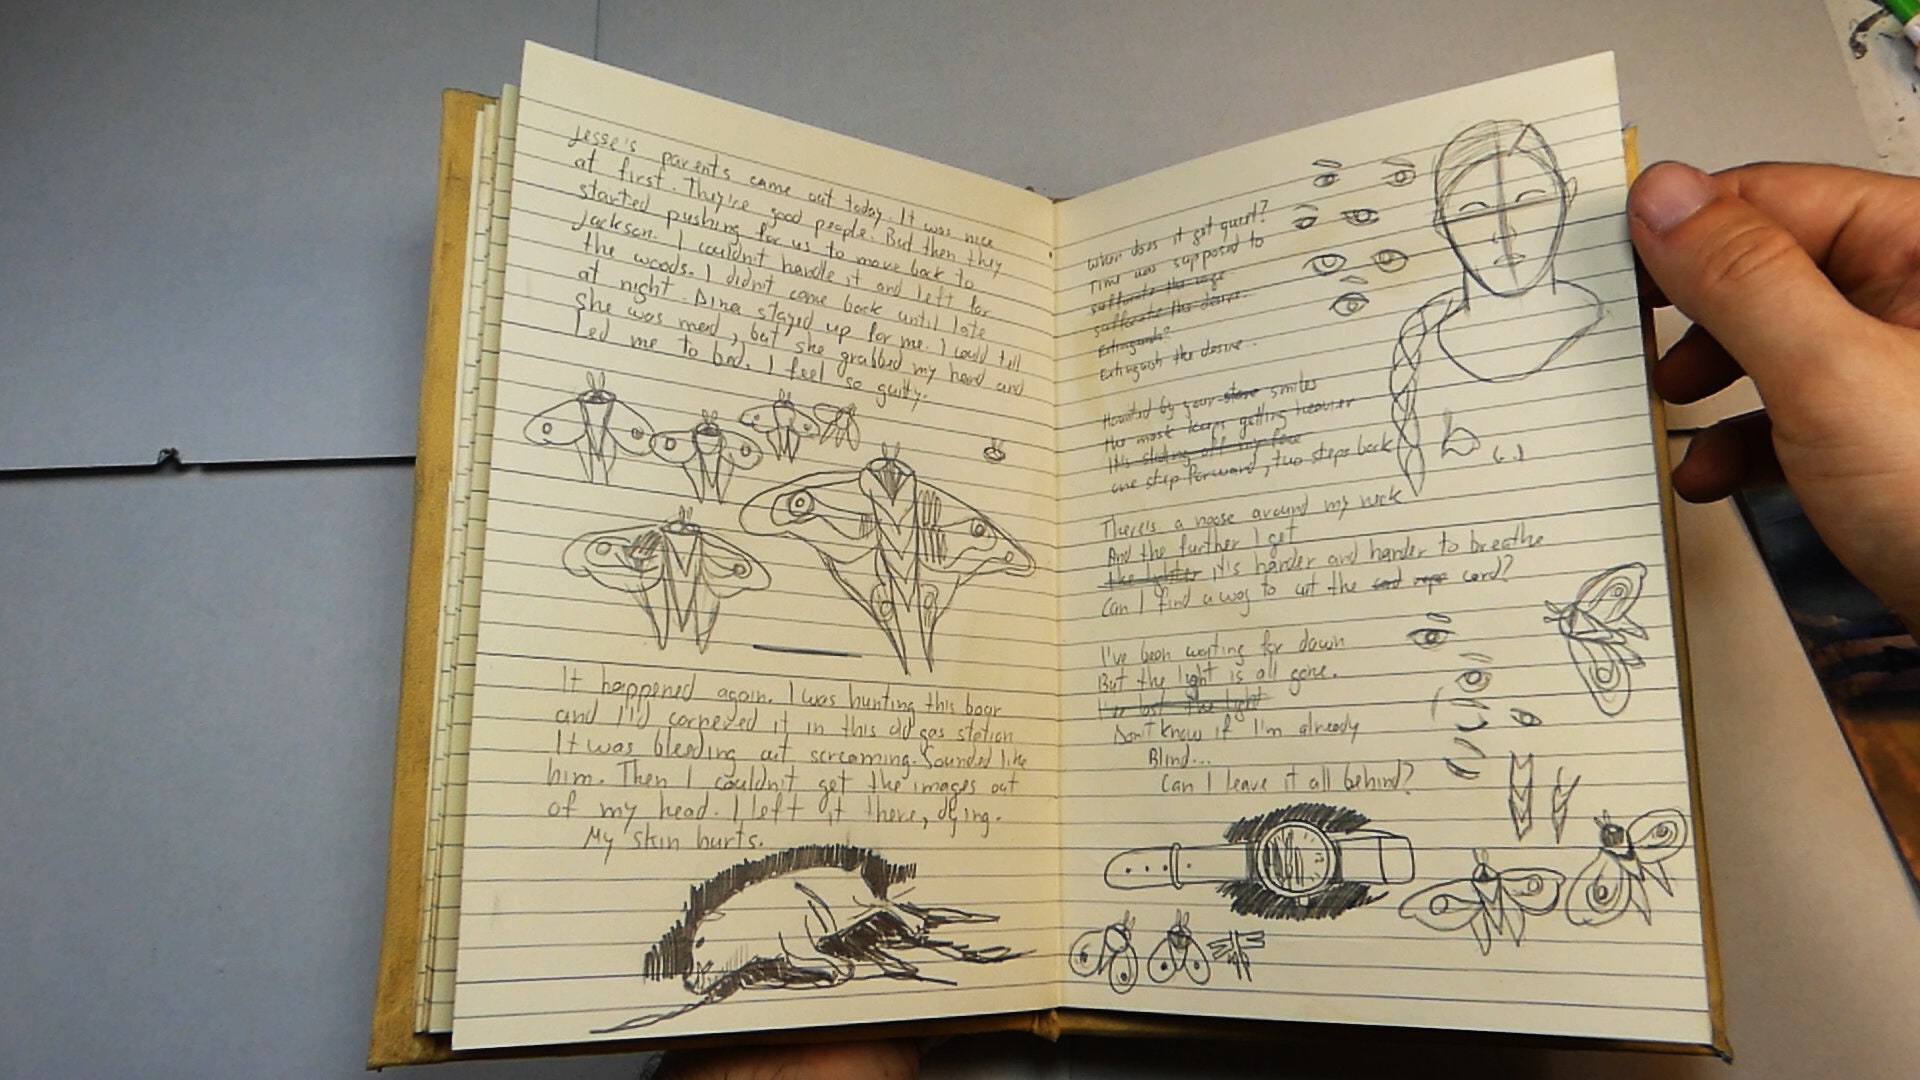 Jesse's parents came out today. It was nice
at first. They're good people. But then they
started pushing for us to move back to
Jackson. I couldn't handle it and left for
the woods. I didn't come back until late
at night. Dina stayed up for me. I could tell
she was mad, but she grabbed my hand and
led me to bed. I feel so guilty.
It happened again. I was hunting this boar
and I'd cornered it in this old gas station
It was bleeding out screaming. Sounded like
him. Then I couldn't get the images out
of my head. I left it there, dying.
My skin hurts.
When does it get quiet?
Time was supposed to
suffocate the rage
suffocate the desire.
Extinguish?
Extinguish the desire.
Haunted by your stare smiles
the mask keeps getting heavier
It's sliding off my face
one step forward, two steps back
There's a noose around my neck
And the further I get
the lighter it's harder and harder to breathe
Can I find a way to cut the cord rope cord?
I've been waiting for dawn
But the light is all gone.
I've lost the light
Don't know if I'm already
Blind...
Can I leave it all behind?